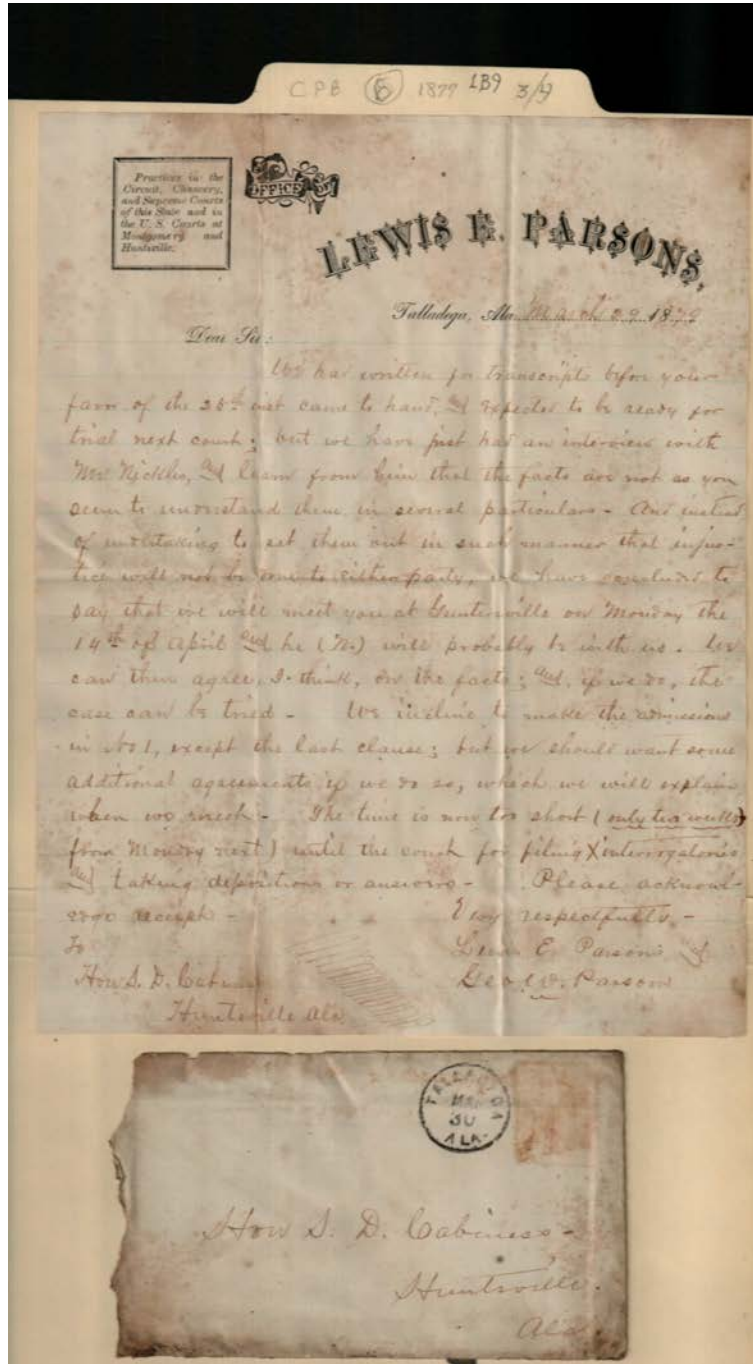 CPB 6 1879 LB9 3/4
Practices in the
Circuit, Chancery,
and Supreme Courts
of this State and in
the U. S. Courts at
Montgomery and
Huntsville.
OFFICE OF
LEWIS E. PARSONS,
Talladega, Ala. March 29 1879
Dear Sir:
We had written for transcripts before your
favor of the 26th inst came to hand, and expected to be ready for
trial next court; but we have just had an interview with
Mr Nickles, and learn from him that the facts are not as you
seem to understand them in several particulars - And instead
of undertaking to set them out in such manner that injus-
tice will not be done to either party, we have concluded to
say that we will meet you at Guntersville on Monday the
14th of April and he (N.) will probably be with us. We
can then agree, I think, on the facts; and, if we do, the
case can be tried - We incline to make the admissions
in No 1, except the last clause; but we should want some
additional agreements if we do so, which we will explain
when we meet - The time is now too short (only two weeks
from Monday next) until the court for filing X interrogatories
and taking depositions or answers - Please acknowl-
edge receipt -
Very respectfully -
Lewis E. Parsons &
Geo. W. Parsons
To
Hon S. D. Cabiness
Huntsville Ala
TALLADEGA
MAR
30
ALA.
Hon S. D. Cabiness -
Huntsville.
Ala.